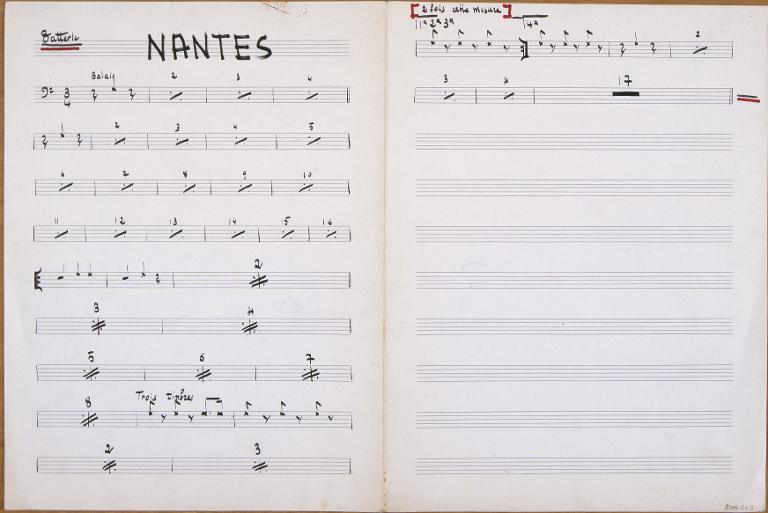 Batterie
NANTES
Balais 2 3 4
3
4
1 2 3 4 5
6 7 8 9 10
11 12 13 14 15 16
2
3 4
5 6 7
8 Trois timbres
2 3
[2 fois cette mesure]
1a 2a 3a 4a
1 2
3 4 17